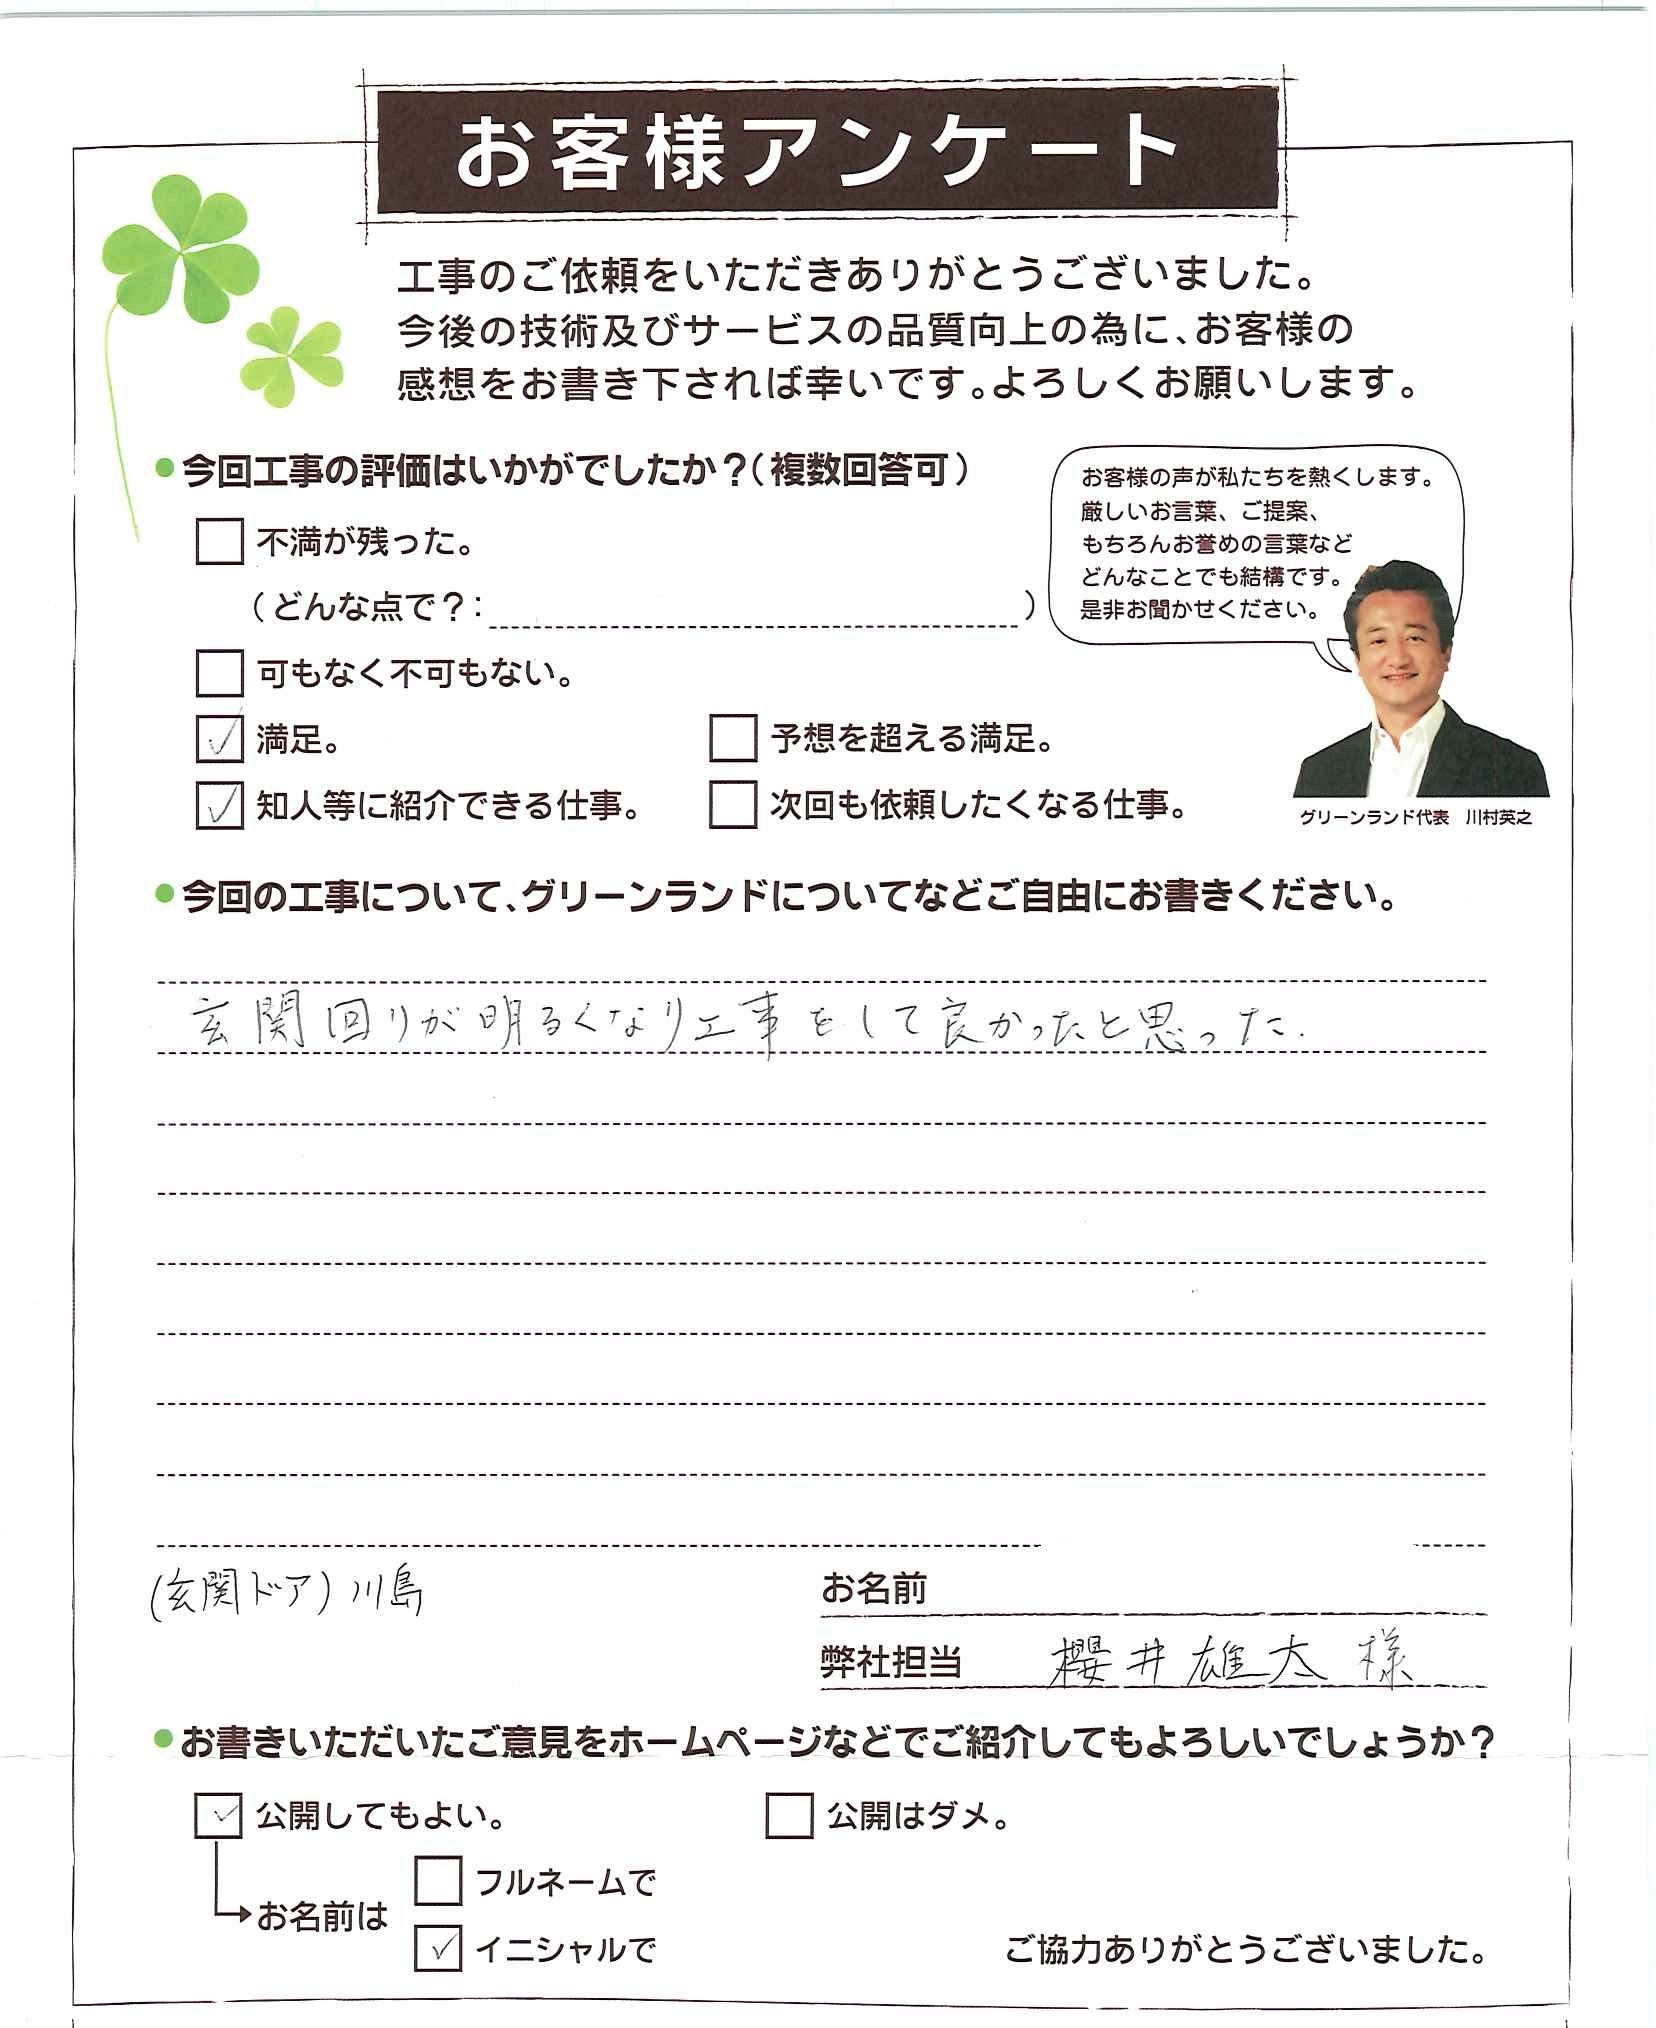 お客様アンケート
工事のご依頼をいただきありがとうございました。
今後の技術及びサービスの品質向上の為に、お客様の
感想をお書き下されば幸いです。よろしくお願いします。
●今回工事の評価はいかがでしたか？（複数回答可）
不満が残った。
（どんな点で？：　）
可もなく不可もない。
満足。
予想を超える満足。
知人等に紹介できる仕事。
次回も依頼したくなる仕事。
お客様の声が私たちを熱くします。
厳しいお言葉、ご提案、
もちろんお誉めの言葉など
どんなことでも結構です。
是非お聞かせください。
グリーンランド代表　川村英之
●今回の工事について、グリーンランドについてなどご自由にお書きください。
玄関回りが明るくなり工事をして良かったと思った.
(玄関ドア) 川島
お名前
弊社担当　櫻井雄大 様
●お書きいただいたご意見をホームページなどでご紹介してもよろしいでしょうか？
公開してもよい。
公開はダメ。
お名前は
フルネームで
イニシャルで
ご協力ありがとうございました。